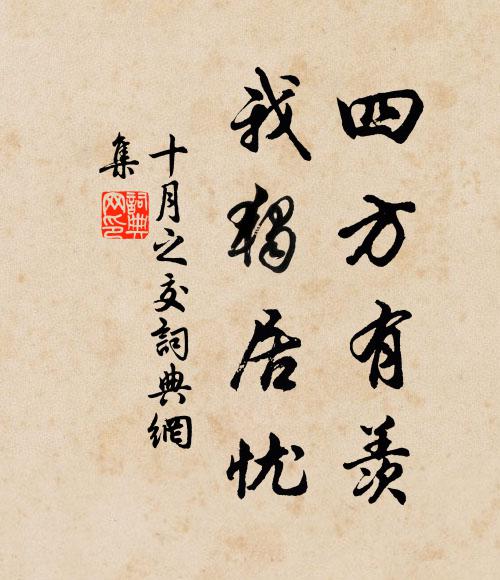 四方有羨
我獨居忧
十月之交詞典網
集
詞典
网印